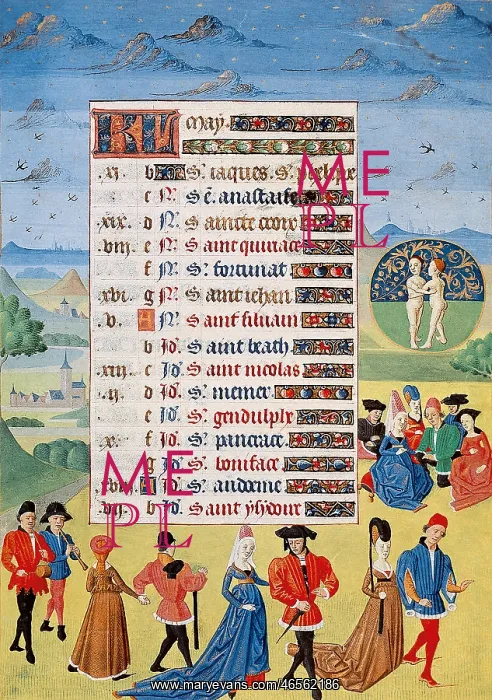 KL May
xj b Sᵗ iaques. Sᵗ
c N. Sᵗᵉ anastaise
xix. d N. Saincte croix
viij. e N. Saint quiriace
f N. Sᵗ fortunat.
xvj. g N. Saint iehan
.v. A N. Saint siluain
b Jd. Saint beath
xiij. c Jd. Saint nicolas
.ij. d Jd. Sᵗ memer
e Jd. Sᵗ gendulphe
.x. f Jd. Sᵗ pancrace
g Jd. Sᵗ boniface
xviij Jd. Sᵗ
.vij. b Jd. Saint yhsidoire
ME
PL
ME
PL
www.maryevans.com/46562186